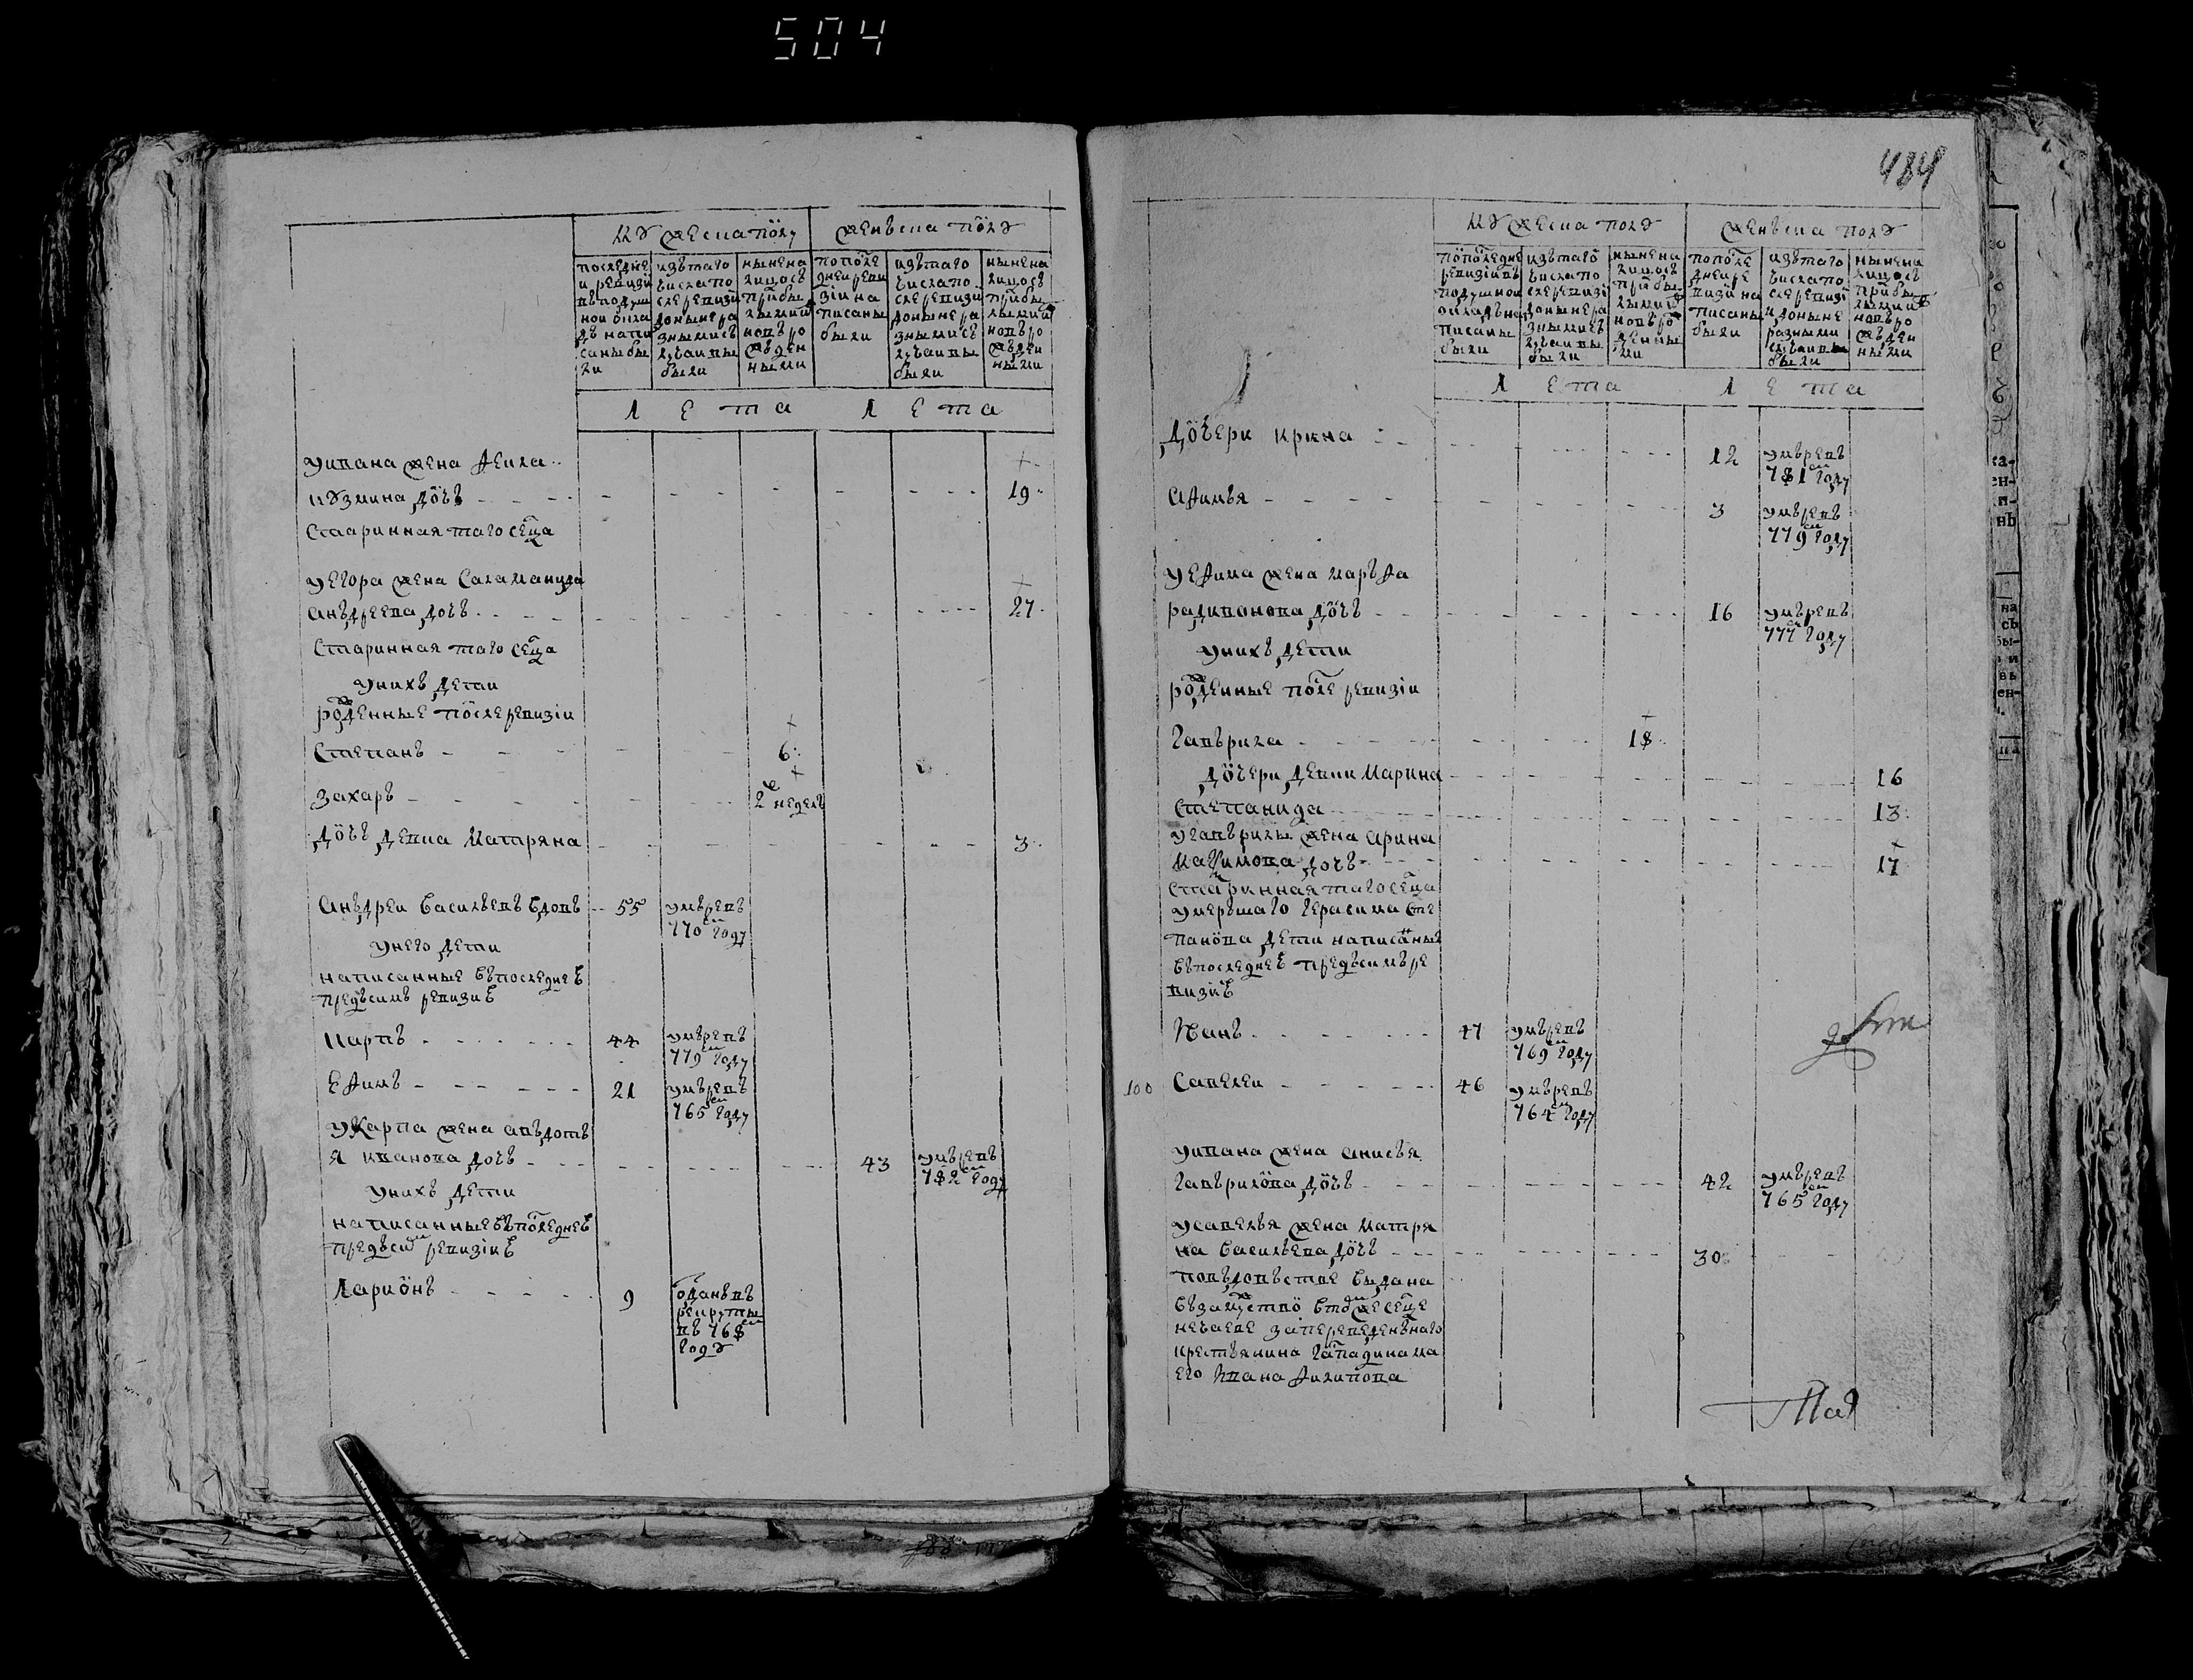 504
мужеска полу
женска полу
последне
и ревизи
въ подуш
ной окла
дъ напи
саны бы
ли
изътаго
числа по
сле ревизи
доныне ра
зными сл
учаи вы
были
ныне на
лицо съ
прибы
лыми и
новъ ро
жъден
ными
по после
дней реви
зiи на
писаны
были
изътаго
числа по
сле ревизи
доныне ра
зными сл
учаи вы
были
ныне на
лицо съ
прибы
лыми и
новъ ро
жъден
ными
лета
лета
у ивана жена фекла
кузмина дочь 19
старинная таго селца
у егора жена саламанида
анъдреева дочь 27
старинная таго селца
у нихъ дети
рожденные после ревизiи
степанъ 6
захаръ 2 недель
дочь девка матряна 3
анъдреи васильевъ вдовъ 55 умъре въ
770 году
у него дети
написанные въ последнеѣ
предъ симъ ревизиѣ
карпъ 44 умъре въ
779 году
ефимъ 21 умъре въ
765 году
у карпа жена авъдоть
я иванова дочь 43 умъре въ
782 году
у нихъ дети
написанные въ последнеѣ
предъ сим ревизiиѣ
ларионъ 9 отданъ въ
рекруты
въ 768
году
484
мужеска полу
женска полу
по последне
ревизiи въ
подушном
окладъ на
писаны
были
изътаго
числа по
сле ревизi
доныне ра
зными сл
учаи вы
были
ныне на
лицо съ
прибы
лыми и
новъ рож
денны
ми
по после
дней ре
визи на
писаны
были
изътаго
числа по
сле ревизi
и доныне
разными
случаи вы
были
ныне на
лицо съ
прибы
лыми и
новъ ро
жъден
ными
лета
лета
дочери ирина 12 умъре въ
781 году
афимья 3 умъре въ
779 году
у ефима жена маръфа
радивонова дочь 16 умъре въ
777 году
у нихъ дети
рожденные после ревизiи
гавърила 18
дочери девки марина 16
степанида 13
у гавърилы жена арина
максимова дочь 17
старинная таго селца
умеръшаго герасима сте
панова дети написанные
въ последнеѣ предъ симъ ре
визиѣ
иванъ 47 умъре въ
769 году
100 савелеи 46 умъре въ
764 году
у ивана жена анисья
гавърилова дочь 42 умъре въ
765 году
у савелья жена матря
на васильева дочь 30
по въдовъстве выдана
въ замужство в том же селце
нечаеве за переведенънаго
крестьянина гаспадина ма
его ивана филипова